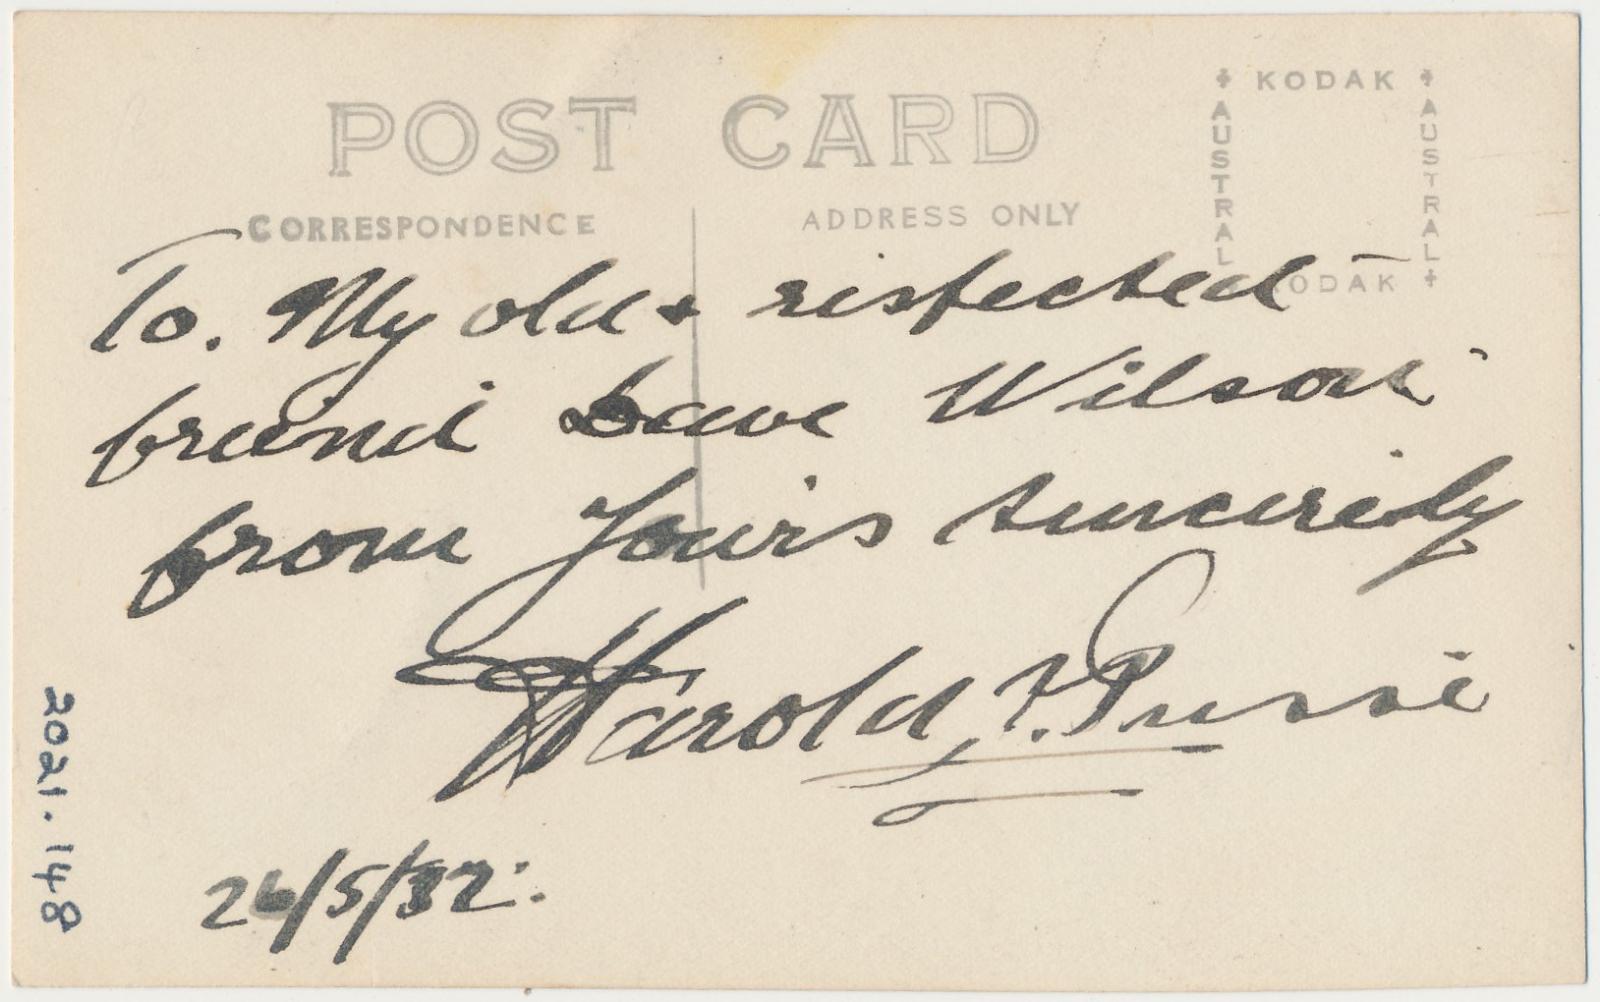 POST CARD
CORRESPONDENCE
ADDRESS ONLY
KODAK
AUSTRAL
AUSTRAL
KODAK
To. My old & respected
friend Dave Wilson
from Yours sincerely
Harold
26/5/32.
2021.148